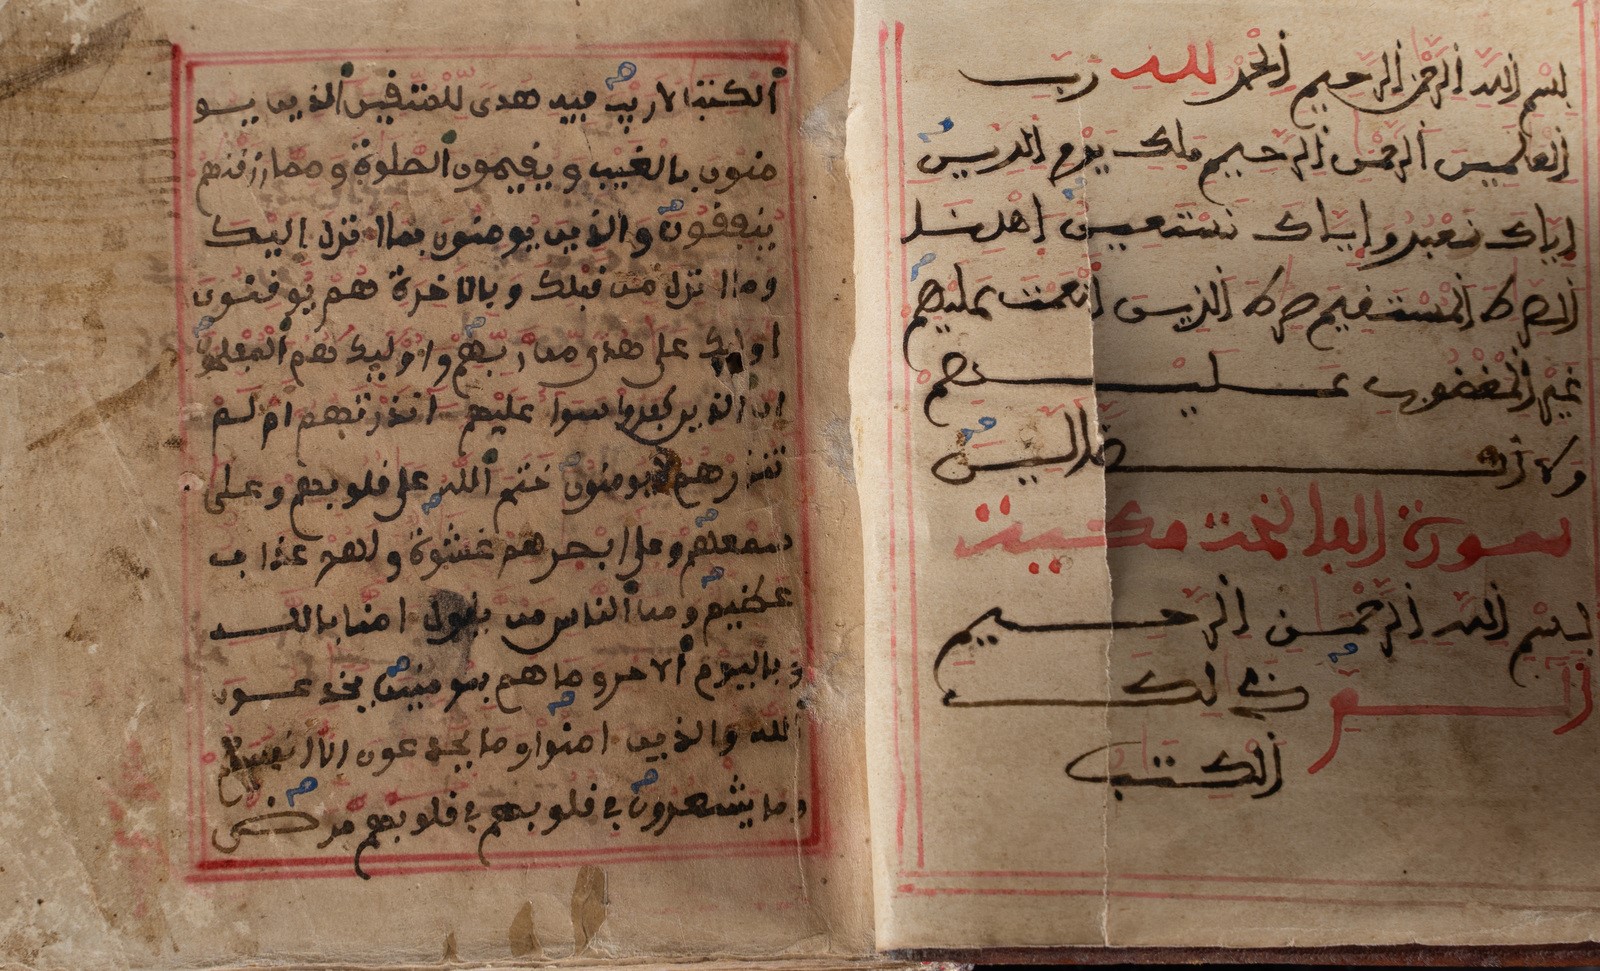 بسم الله الرحمن الرحيم الحمد لله رب
العالمين الرحمن الرحيم ملك يوم الدين
اياك نعبد واياك نستعين اهدنا
الصرط المستقيم صرط الذين انعمت عليهم
غير المغضوب عليهم
ولا الضالين
سورة الفاتحة مكية
بسم الله الرحمن الرحيم
ذلك
الكتب
الكتب لا ريب فيه هدى للمتقين الذين يو
منون بالغيب ويقيمون الصلوة ومما رزقنهم
ينفقون والذين يومنون بما انزل اليك
وما انزل من قبلك وبالاخرة هم يوقنون
اوليك على هدى من ربهم واوليك هم المفلحون
ان الذين كفروا سوا عليهم انذرتهم ام لم
تنذرهم لا يومنون ختم الله على قلوبهم وعلى
سمعهم وعلى ابصرهم غشوة ولهم عذاب
عظيم ومن الناس من يقول امنا بالله
وباليوم الاخر وما هم بمومنين يخدعون
الله والذين امنوا وما يخدعون الا انفسهم
وما يشعرون في قلوبهم في قلوبهم مرض